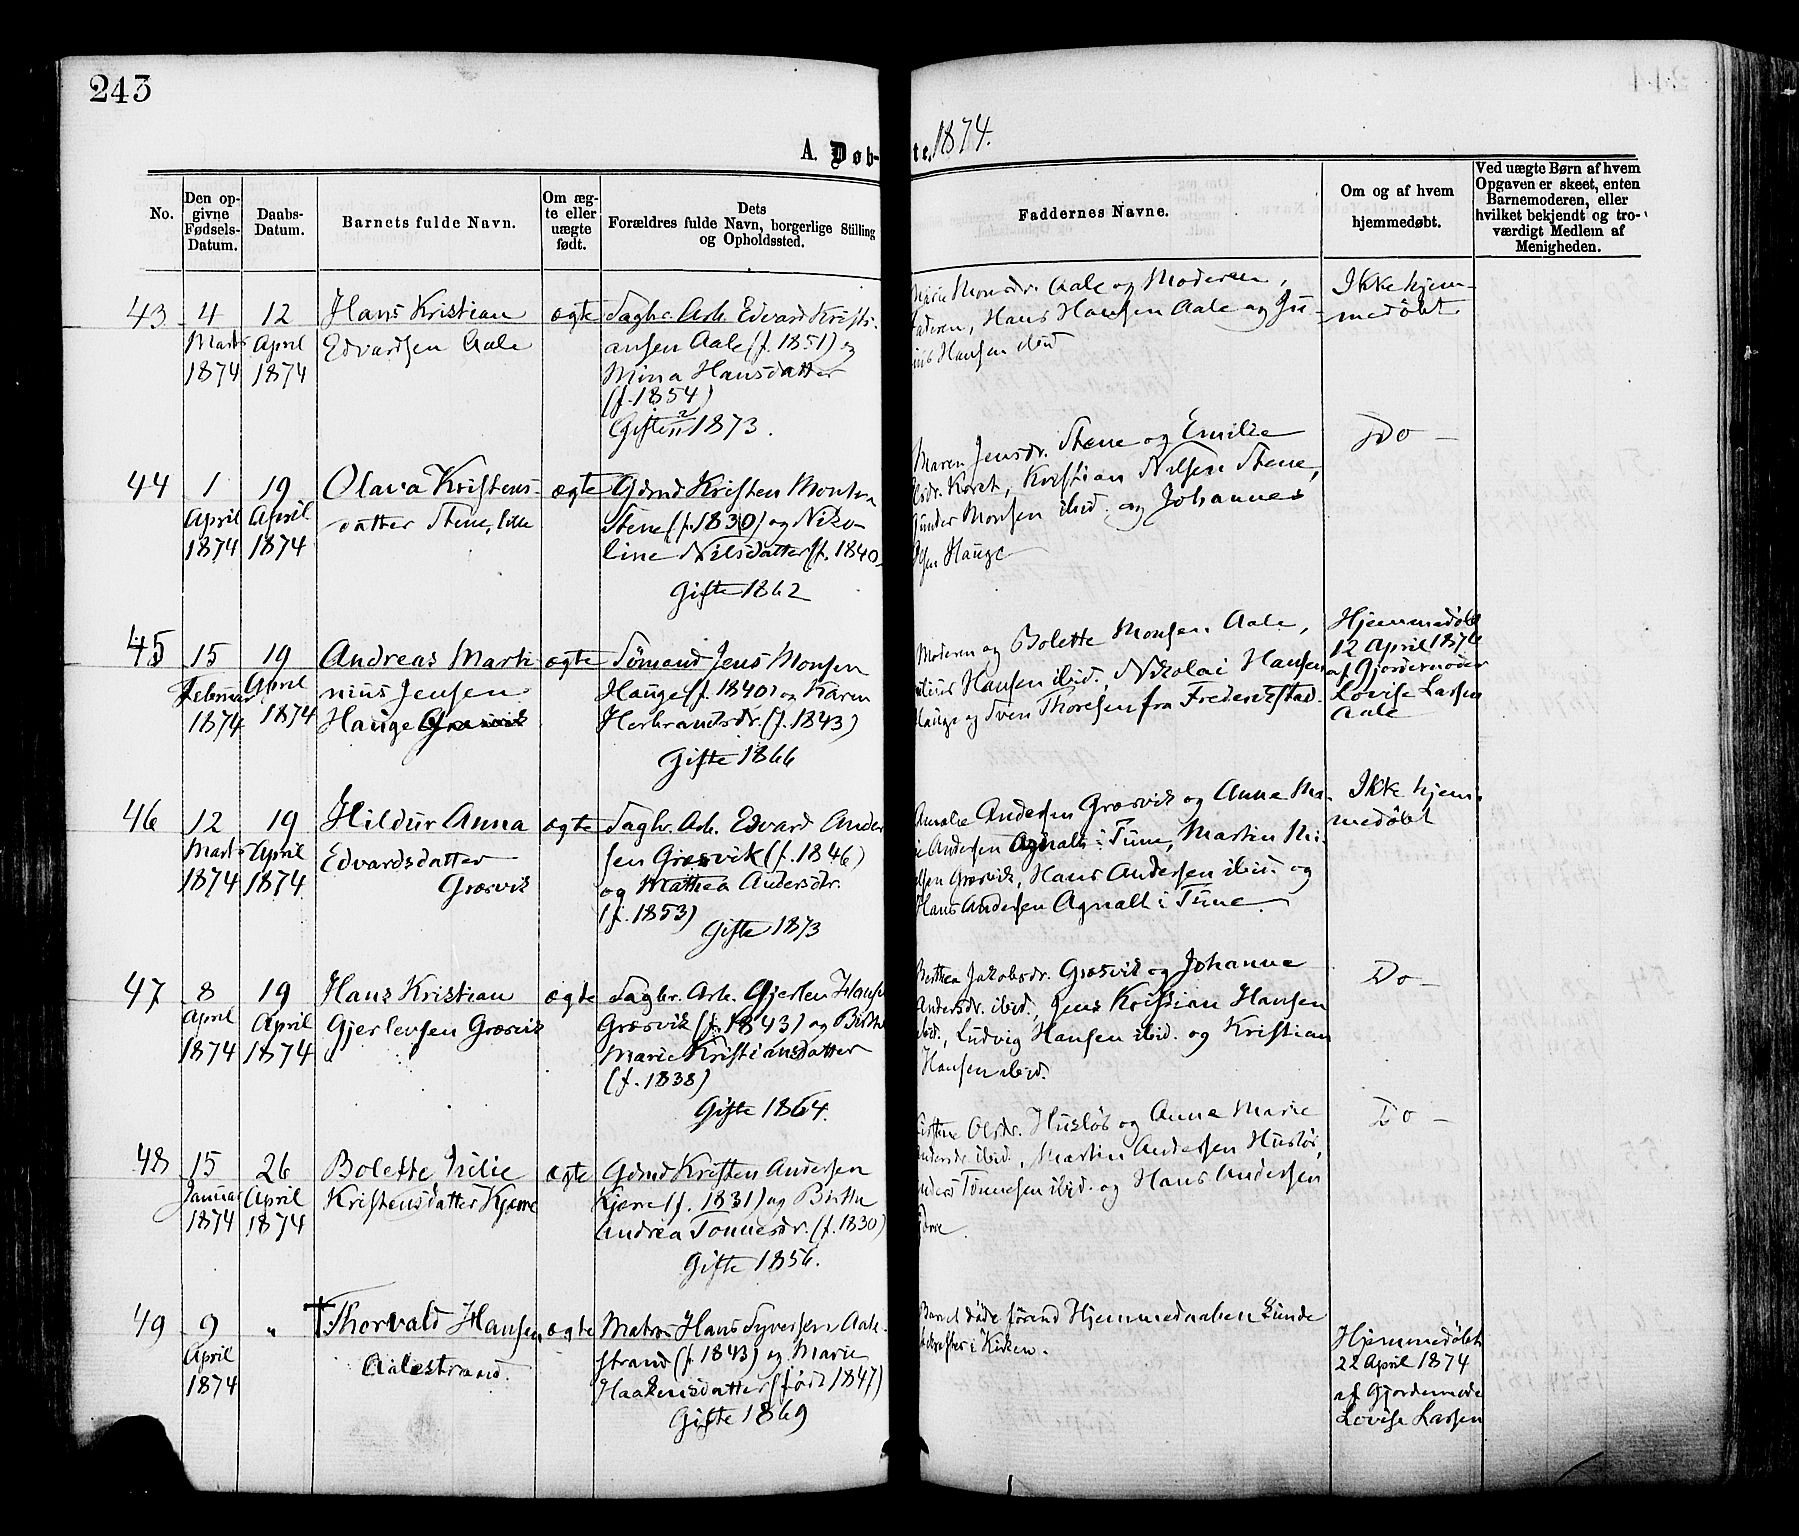 243
A. Døb-
te. 1874.
No.
Den op-
givne
Fødsels-
Datum.
Daabs-
Datum.
Barnets fulde Navn.
Om æg-
te eller
uægte
født.
Dets
Forældres fulde Navn, borgerlige Stilling
og Opholdssted.
Faddernes Navne.
Om og af hvem
hjemmedøbt.
Ved uægte Børn af hvem
Opgaven er skeet, enten
Barnemoderen, eller
hvilket bekjendt og tro-
værdigt Medlem af
Menigheden.
43
4
Marts
1874
12
April
1874
Hans Kristian
Edvardsen Aale
ægte
Sagbr. Arb. Edvard Kristi-
ansen Aale (f. 1851) og
Mina Hansdatter
(f. 1854)
Gifte 1873.
Marie Monsdr. Aale og Moderen,
Faderen, Hans Hansen Aale og Ju-
lius Hansen ibid
Ikke hjem-
medøbt
44
1
April
1874
19
April
1874
Olava Kristens-
datter Stene, lille
ægte
Gdmd Kristen Monsen
Stene (f. 1830) og Niko-
line Nilsdatter (f. 1840)
Gifte 1862
Maren Jensdr. Stene og Emilie
Kristian Nilsen Stene,
Gunder Monsen ibid. og Johannes
Hauge
Do -
45
15
Februar
1874
19
April
1874
Andreas Marti
nius Jensen
Hauge Græsvik
ægte
Sømand Jens Monsen
Hauge (f. 1840) og Karen
Herbrandsdr. (f. 1843)
Gifte 1866
Moderen og Bolette Monsen Aale,
Julius Hansen ibid., Nikolai Hansen
Hauge og Sven Thoresen fra Frederikstad.
Hjemmedøbt
12 April 1874
af Gjordemoder
Lovise Larsen
Aale
46
12
Marts
1874
19
April
1874
Hildur Anna
Edvardsdatter
Græsvik
ægte
Sagbr. Arb. Edvard Ander
sen Græsvik (f. 1846)
og Mathea Andersdr.
(f. 1853)
Gifte 1873
Andersen Græsvik og Anna Ma-
rie Andersen Agnalt i Tune, Martin Ni-
elsen Græsvik, Hans Andersen ibid. og
Hans Andersen Agnalt i Tune.
Ikke hjem-
medøbt
47
8
April
1874
19
April
1874
Hans Kristian
Gjerlevsen Græsvik
ægte
Sagbr. Arb. Gjerlev Hansen
Græsvik (f. 1843) og Birthe
Marie Kristiansdatter
(f. 1838)
Gifte 1864.
Berthea Jakobsdr. Græsvik og Johanne
Andersdr. ibid., Jens Kristian Hansen
ibid., Ludvig Hansen ibid. og Kristian
Hansen ibid.
Do -
48
15
Januar
1874
26
April
1874
Bolette Julie
Kristensdatter Kjærre
ægte
Gdmd Kristen Andersen
Kjærre (f. 1831) og Birthe
Andrea Tønnesdr. (f. 1830)
Gifte 1856.
Olsdr. Husløs og Anna Marie
Andersdr ibid., Martin Andersen Husløs,
Anders Tønnesen ibid. og Hans Andersen
Kjærre.
Do -
49
9
April
1874
"
† Thorvald Hansen
Aalestrand.
ægte
Matros Hans Syversen Aale-
strand (f. 1843) og Marie
Haakensdatter (født 1847)
Gifte 1869
Barnet døde førend Hjemmedaaben kunde
bekræftes i Kirken.
Hjemmedøbt
22 April 1874
af Gjordemoder
Lovise Larsen